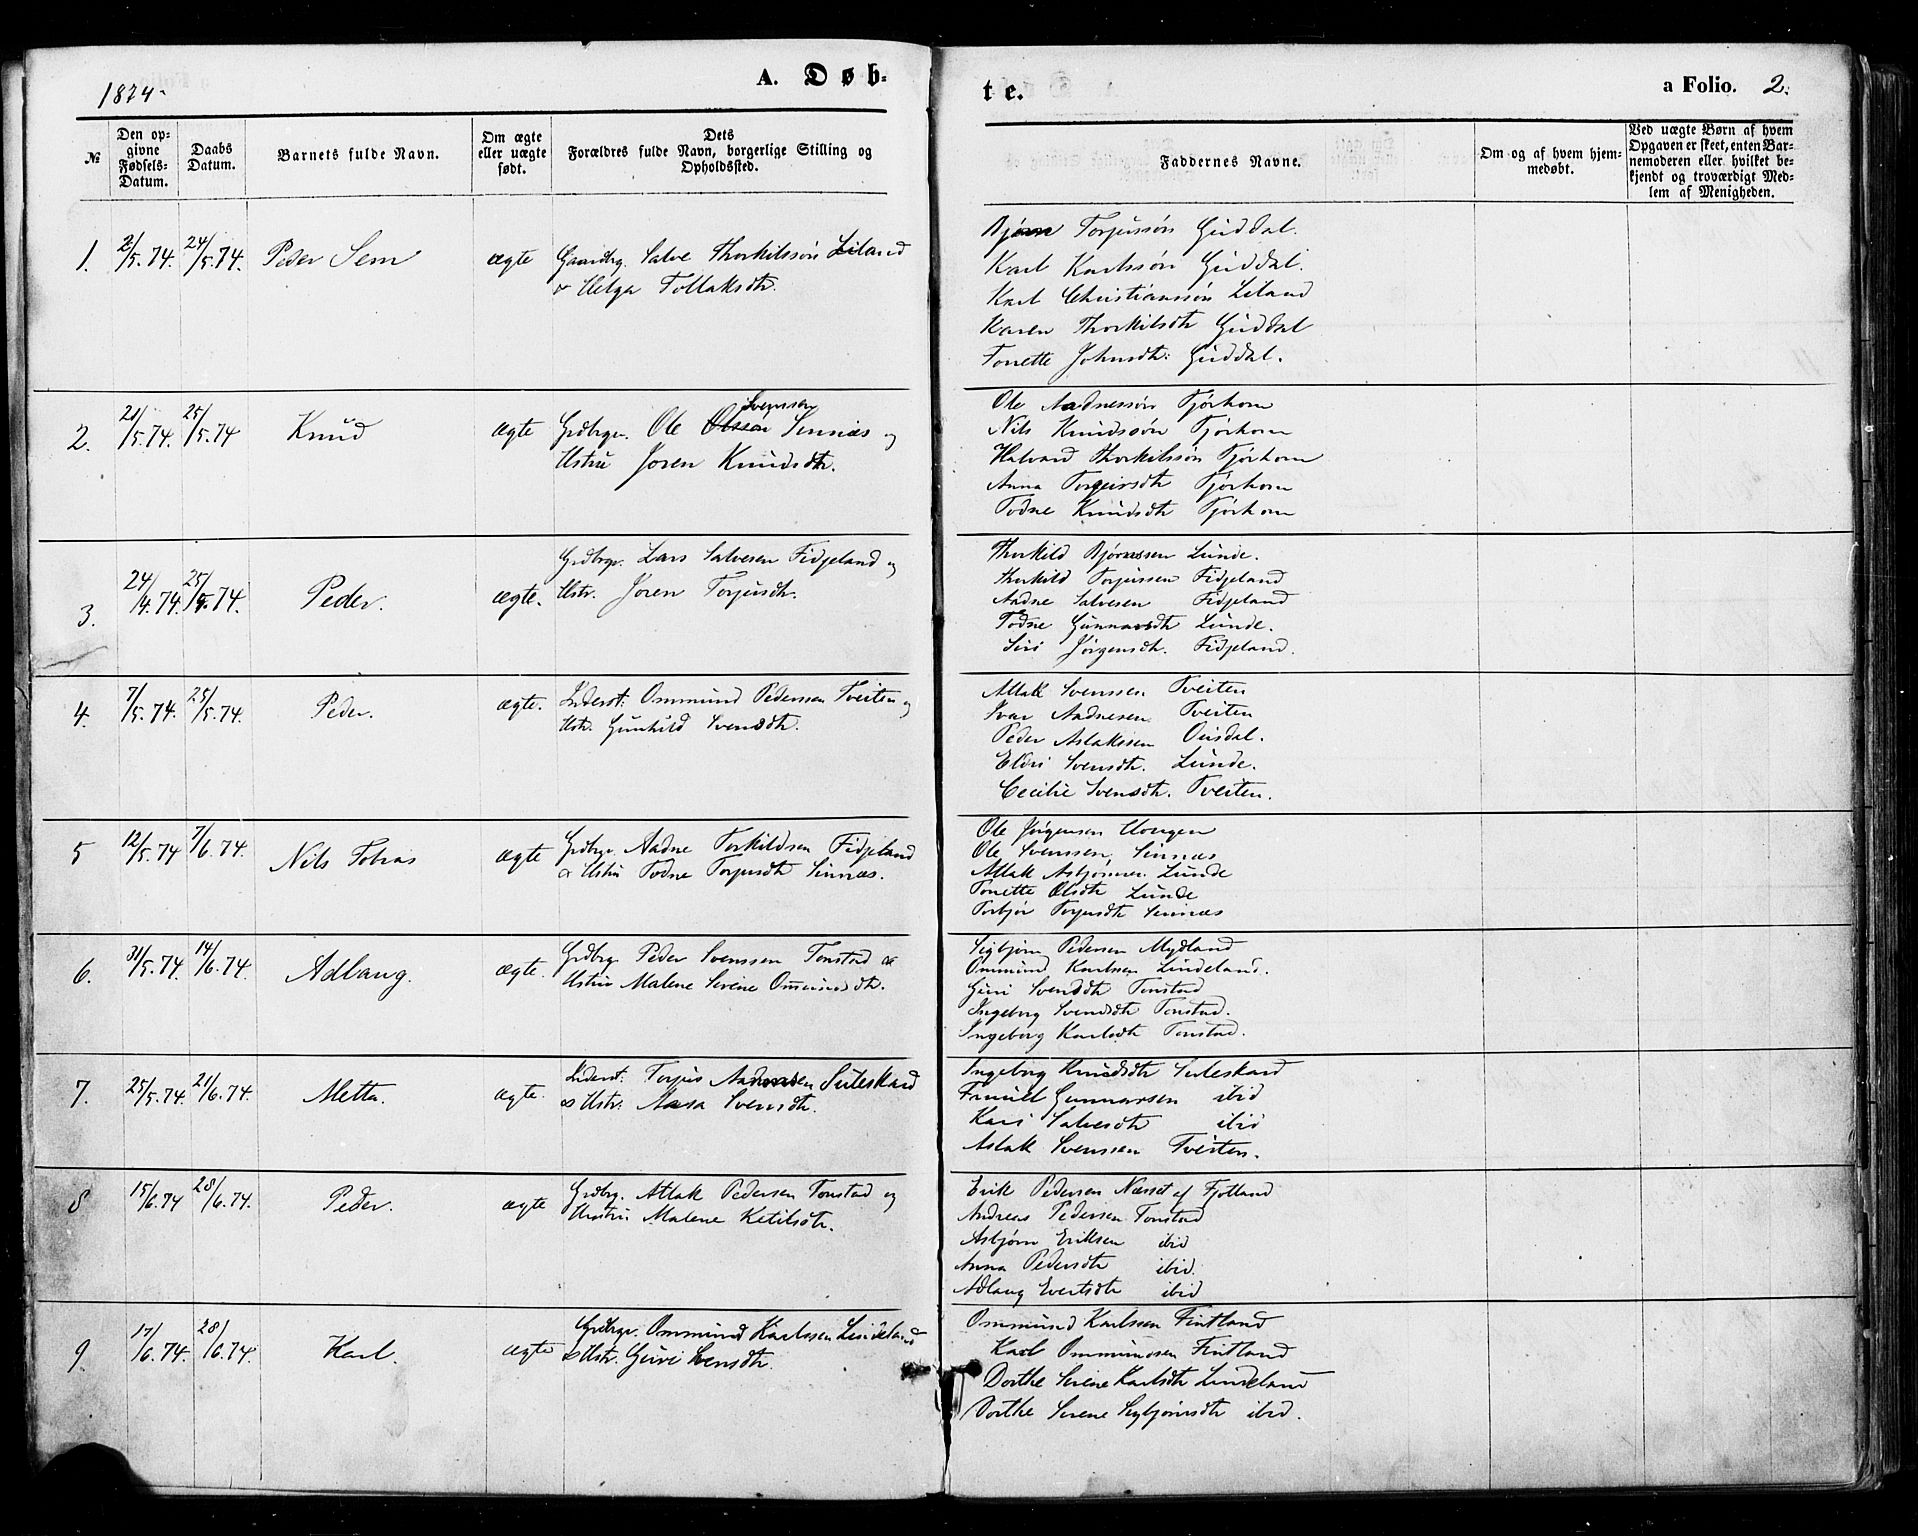 1874.
A. Døb-
te.
a Folio. 2.
№
Den op-
givne
Fødsels-
Datum.
Daabs
Datum.
Barnets fulde Navn.
Om ægte
eller uægte
født.
Dets
Forældres fulde Navn, borgerlige Stilling og
Opholdssted.
Faddernes Navne.
Om og af hvem hjem-
medøbt.
Ved uægte Børn af hvem
Opgaven er skeet, enten Bar-
nemoderen eller hvilket be-
kjendt og troværdigt Med-
lem af Menigheden.
1. 2/5.74. 24/5.74. Peder Sem ægte Gaardbrg. Salve Thorkilssøn Liland
& Helga Tollaksdtr.
Bjørn Torjussøn Guddal.
Karl Karlssøn Guddal.
Karl Christianssøn Liland
Karen Thorkilsdtr Guddal
Tonette Johnsdtr: Guddal.
2. 21/5.74. 25/5.74 Knud ægte Grdbrgr. Ole Olsson Svensson Sinnæs og
Hstru Joren Knudsdtr.
Ole Aadnessøn Tjørhom
Nils Knudssøn Tjørhom
Halvard Thorkilssøn Tjørhom
Anna Torgeirsdtr Tjørhom
Todne Knudsdtr Tjørhom
3. 24/4.74. 25/5.74. Peder. ægte. Grdbrgr. Lars Salvesen Fidjeland og
Hstr. Joren Torjusdtr.
Thorkild Bjørnssen Lunde.
Thorkild Torjussen Fidjeland
Aadne Salvesen Fidjeland
Todne Gunnarsdtr Lunde.
Siri Jørgensdtr. Fidjeland.
4. 7/5.74. 25/5.74. Peder. ægte. Inderst. Ommund Pedersen Tveiten og
Hstr. Gunhild Svensdtr.
Atlak Svenssen Tveiten
Ivar Aadnesen Tveiten
Peder Aslakssen Ousdal.
Eldri Svensdtr. Lunde.
Cecilie Svensdtr. Tveiten.
5 12/5.74 7/6.74. Nils Tobias ægte Grdbrgr Aadne Torkildsen Fidjeland
& Hstru Todne Torjusdtr Sinnæs.
Ole Jørgensen Hougen
Ole Svenssen Sinnæs
Atlak Asbjørnsen Lunde
Tonette Olsdtr Lunde
Torbjør Torjusdtr Sinnæs
6. 31/5.74. 14/6.74. Adlaug. ægte. Grdbrg Peder Svenssen Tonstad &
Hstru Malene Serine Ommundsdtr.
Sigbjørn Pedersen Mydland
Ommund Karlsen Lindeland.
Guri Svendsdtr Tonstad
Ingeborg Svendsdtr Tonstad.
Ingeborg Karlsdtr Tonstad.
7. 25/5.74. 21/6.74. Metta. ægte. Inderst. Torjus Aadnesen Suleskard
& Hstr. Aasa Svensdtr.
Ingeborg Knudsdtr Suleskard
Gunnarsen ibid
Kari Salvesdtr ibid
Aslak Svenssen Tveiten.
8 15/6.74 28/6.74. Peder. ægte Grdbrg. Atlak Pedersen Tonstad og
Hustru Malene Ketilsdtr.
Erik Pedersen Næsset af Fjotland
Andreas Pedersen Tonstad
Asbjørn Eriksen ibid
Anna Pedersdtr ibid.
Adlaug Evertsdtr ibid
9. 17/6.74. 28/6.74. Karl. ægte Grdbrgr. Ommund Karlssen Lindeland
& Hstr. Guri Svensdtr.
Ommund Karlsen Fintland
Karl Ommundsen Fintland
Dorthe Serene Karlsdtr Lindeland
Dorthe Serene Sigbjørnsdtr ibid.